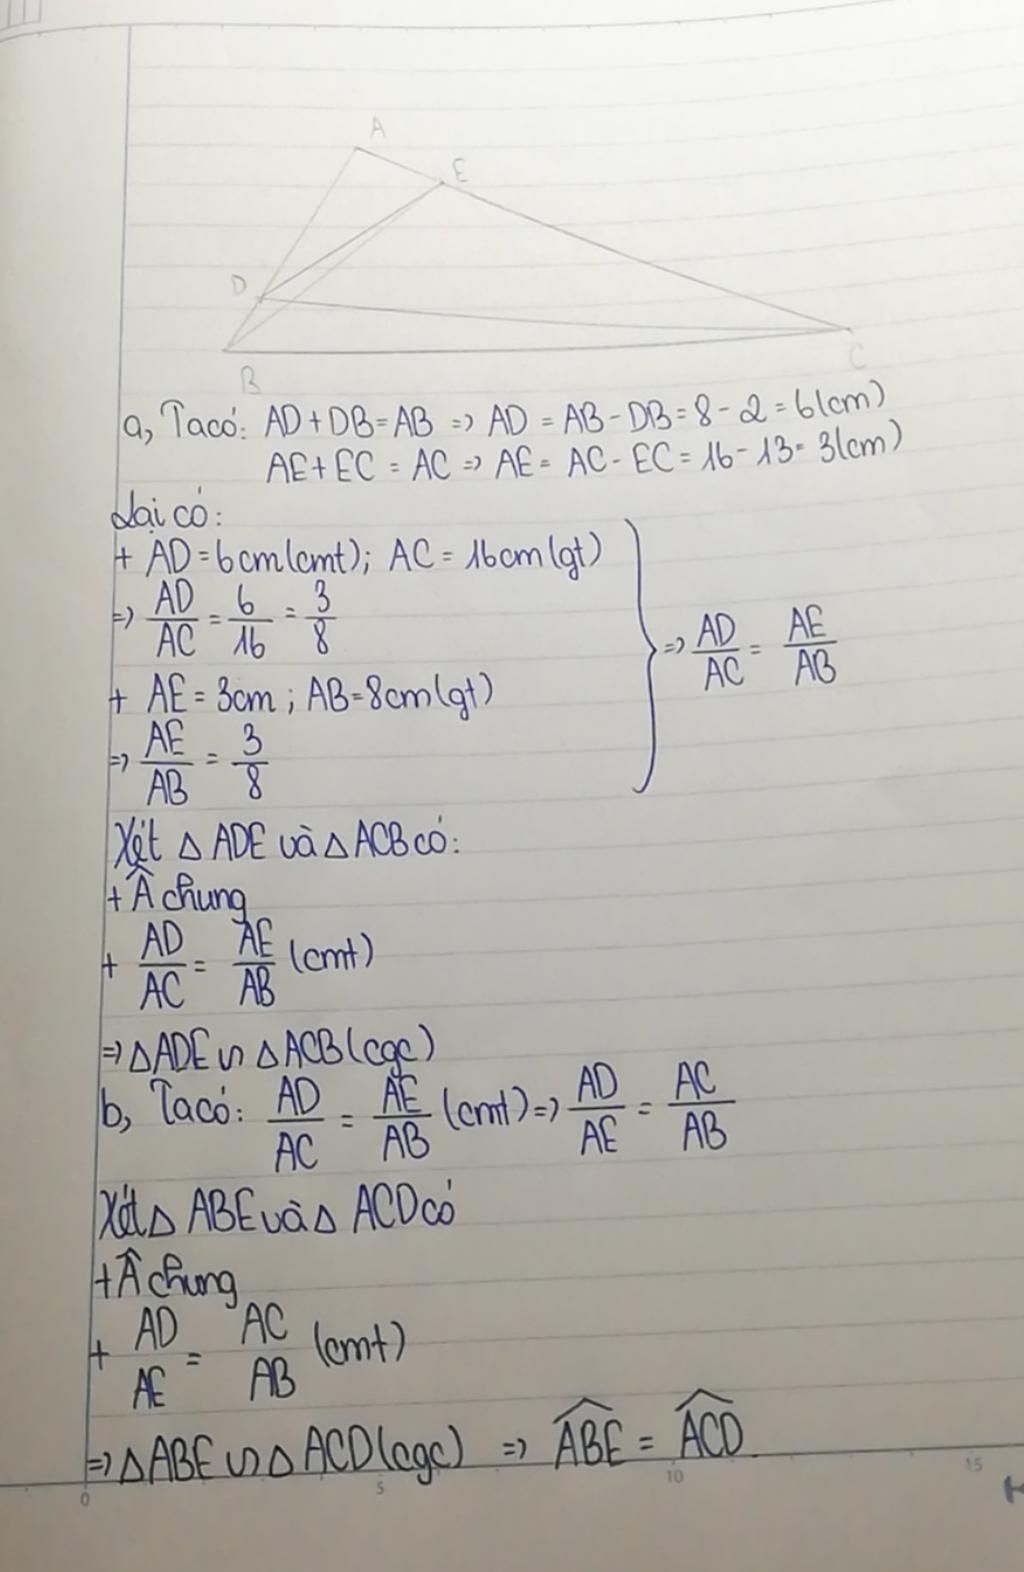 A
E
D
B
C
a, Ta có: AD + DB = AB => AD = AB - DB = 8 - 2 = 6(cm)
AE + EC = AC => AE = AC - EC = 16 - 13 = 3(cm)
Lại có:
+ AD = 6cm(cmt); AC = 16cm(gt)
=> AD/AC = 6/16 = 3/8
=> AD/AC = AE/AB
+ AE = 3cm; AB = 8cm(gt)
=> AE/AB = 3/8
Xét Δ ADE và Δ ACB có:
+ Â chung
+ AD/AC = AE/AB (cmt)
=> Δ ADE ᔕ Δ ACB (cgc)
b, Ta có: AD/AC = AE/AB (cmt) => AD/AE = AC/AB
Xét Δ ABE và Δ ACD có
+ Â chung
+ AD/AE = AC/AB (cmt)
=> Δ ABE ᔕ Δ ACD (cgc) => \widehat{ABE} = \widehat{ACD}
0 5 10 15